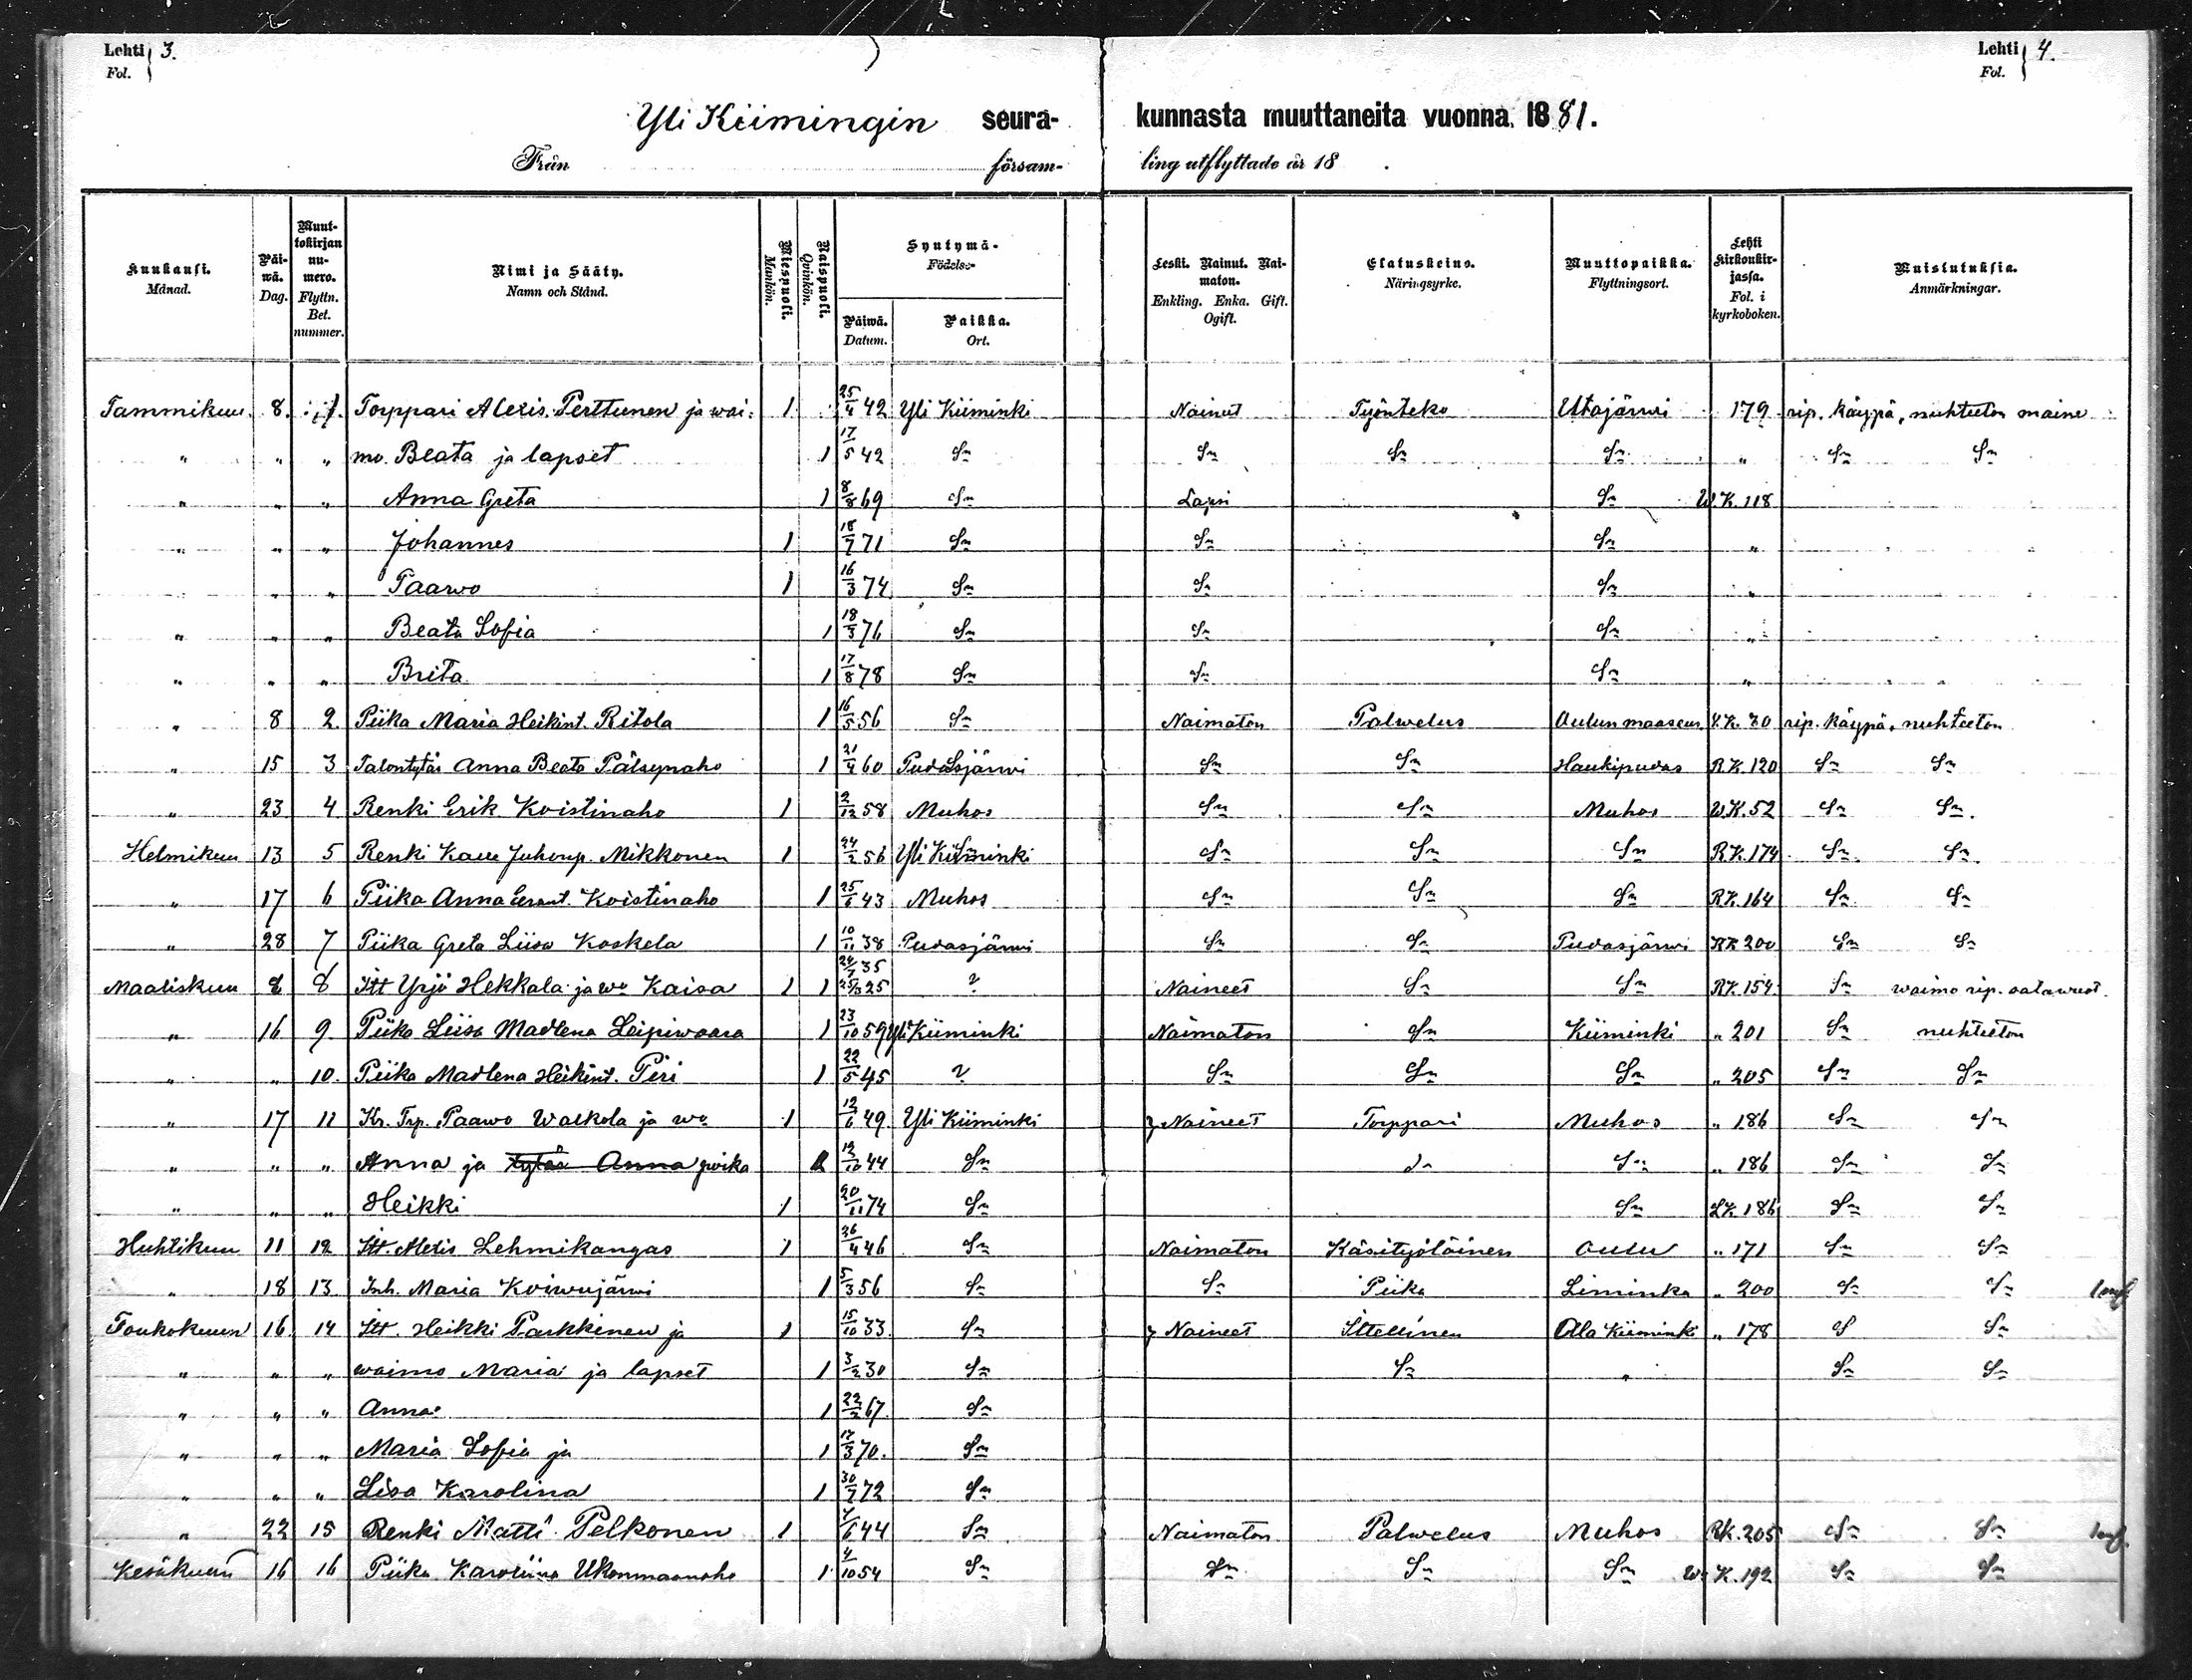 Lehti 3. Lehti 4.
Fol. Fol.
Yli Kiimingin seura- kunnasta muuttaneita vuonna 1881.
Från försam- ling utflyttade år 18 .
Kuukausi. Månad. Päi-wä. Dag. Muut-tokirjan nu-mero. Flyttn. Bet. nummer. Nimi ja Sääty. Namn och Stånd. Miespuoli. Mankön. Naispuoli. Qvinkön. Syntymä- Födelse- Päiwä. Datum. Paikka. Ort. Leski. Nainut. Nai-maton. Enkling. Enka. Gift. Ogift. Elatuskeino. Näringsyrke. Muuttopaikka. Flyttningsort. Lehti Kirkonkir-jassa. Fol. i kyrkoboken. Muistutuksia. Anmärkningar.
Tammikuu. 8. 1. Torppari Alexis Perttunen ja wai: 1 25/4 42 Yli Kiiminki Nainut Työnteko Utajärwi 179 rip. käypä, nuhteeton maine
" " " mo. Beata ja lapset 1 17/5 42 Sn Sn Sn Sn " Sn Sn
" " " Anna Greta 1 8/8 69 Sn Lapsi Sn W.K. 118
" " " Johannes 1 18/7 71 Sn Sn Sn "
" " " Paawo 1 16/3 74 Sn Sn Sn "
" " " Beata Sofia 1 18/3 76 Sn Sn Sn "
" " " Brita 1 17/8 78 Sn Sn Sn "
" 8 2. Piika Maria Heikint. Ritola 1 16/5 56 Sn Naimaton Palwelus Oulun maaseur. K. 30 rip. käypä, nuhteeton
" 15 3 Talontytär Anna Beata Pälsynaho 1 21/4 60 Pudasjärwi Sn Sn Haukipudas R.K. 120 Sn Sn
" 23 4 Renki Erik Koistinaho 1 2/12 58 Muhos Sn Sn Muhos W.K. 52 Sn Sn.
Helmikuu 13 5 Renki Kalle Juhonp. Mikkonen 1 24/2 56 Yli Kiiminki Sn Sn Sn R.K. 174 Sn. Sn.
" 17 6 Piika Anna Koistinaho 1 25/6 43 Muhos Sn Sn Sn R.K. 164 Sn Sn
" 28 7 Piika Greta Liisa Koskela 1 10/11 38 Pudasjärwi Sn Sn Pudasjärwi RK 200 Sn Sn
Maaliskuu 8 8 Itt Yrjö Hekkala ja wo Kaisa 1 1 24/7 35 25/3 25 ? Naineet Sn Sn R.K. 154 Sn waimo rip.
" 16 9 Piika Liisa Madlena Leipiwaara 1 23/10 59 Yli Kiiminki Naimaton Sn Kiiminki " 201 Sn nuhteeton
" " 10. Piika Madlena Heikint. Piri 1 22/5 45 ? Sn Sn Sn " 205 Sn Sn
" 17 11 Kr. Trp. Paawo Walkola ja wo 1 12/6 49 Yli Kiiminki Naineet Torppari Muhos " 186 Sn Sn
" " " Anna ja tytär Anna poika 1 12/10 44 Sn Sn Sn " 186 Sn Sn
" " " Heikki 1 20/11 74 Sn Sn LK. 186 Sn Sn
Huhtikuu 11 12 Itt. Alexis Lehmikangas 1 26/4 46 Sn Naimaton Käsityöläinen Oulu " 171 Sn Sn
" 18 13. Inh. Maria Koiwujärwi 1 5/3 56 Sn Sn Piika Liminka " 200 Sn Sn
Toukokuun 16 14 Itt. Heikki Parkkinen ja 1 15/10 33 Sn Naineet Itellinen Ala Kiiminki " 178 S Sn
" " " waimo Maria ja lapset 1 3/2 30 Sn Sn " Sn Sn
" " " Anna 1 22/2 67 Sn
" " " Maria Sofia ja 1 17/3 70. Sn
" " " Lisa Karolina 1 30/7 72 Sn
" 22 15 Renki Matti Pelkonen 1 7/6 44 Sn Naimaton Palwelus Muhos RK. 205 Sn Sn
Kesäkuun 16 16 Piika Karoliina Ukonmaanaho 1 4/10 54 Sn Sn Sn Sn W. K. 192 Sn Sn